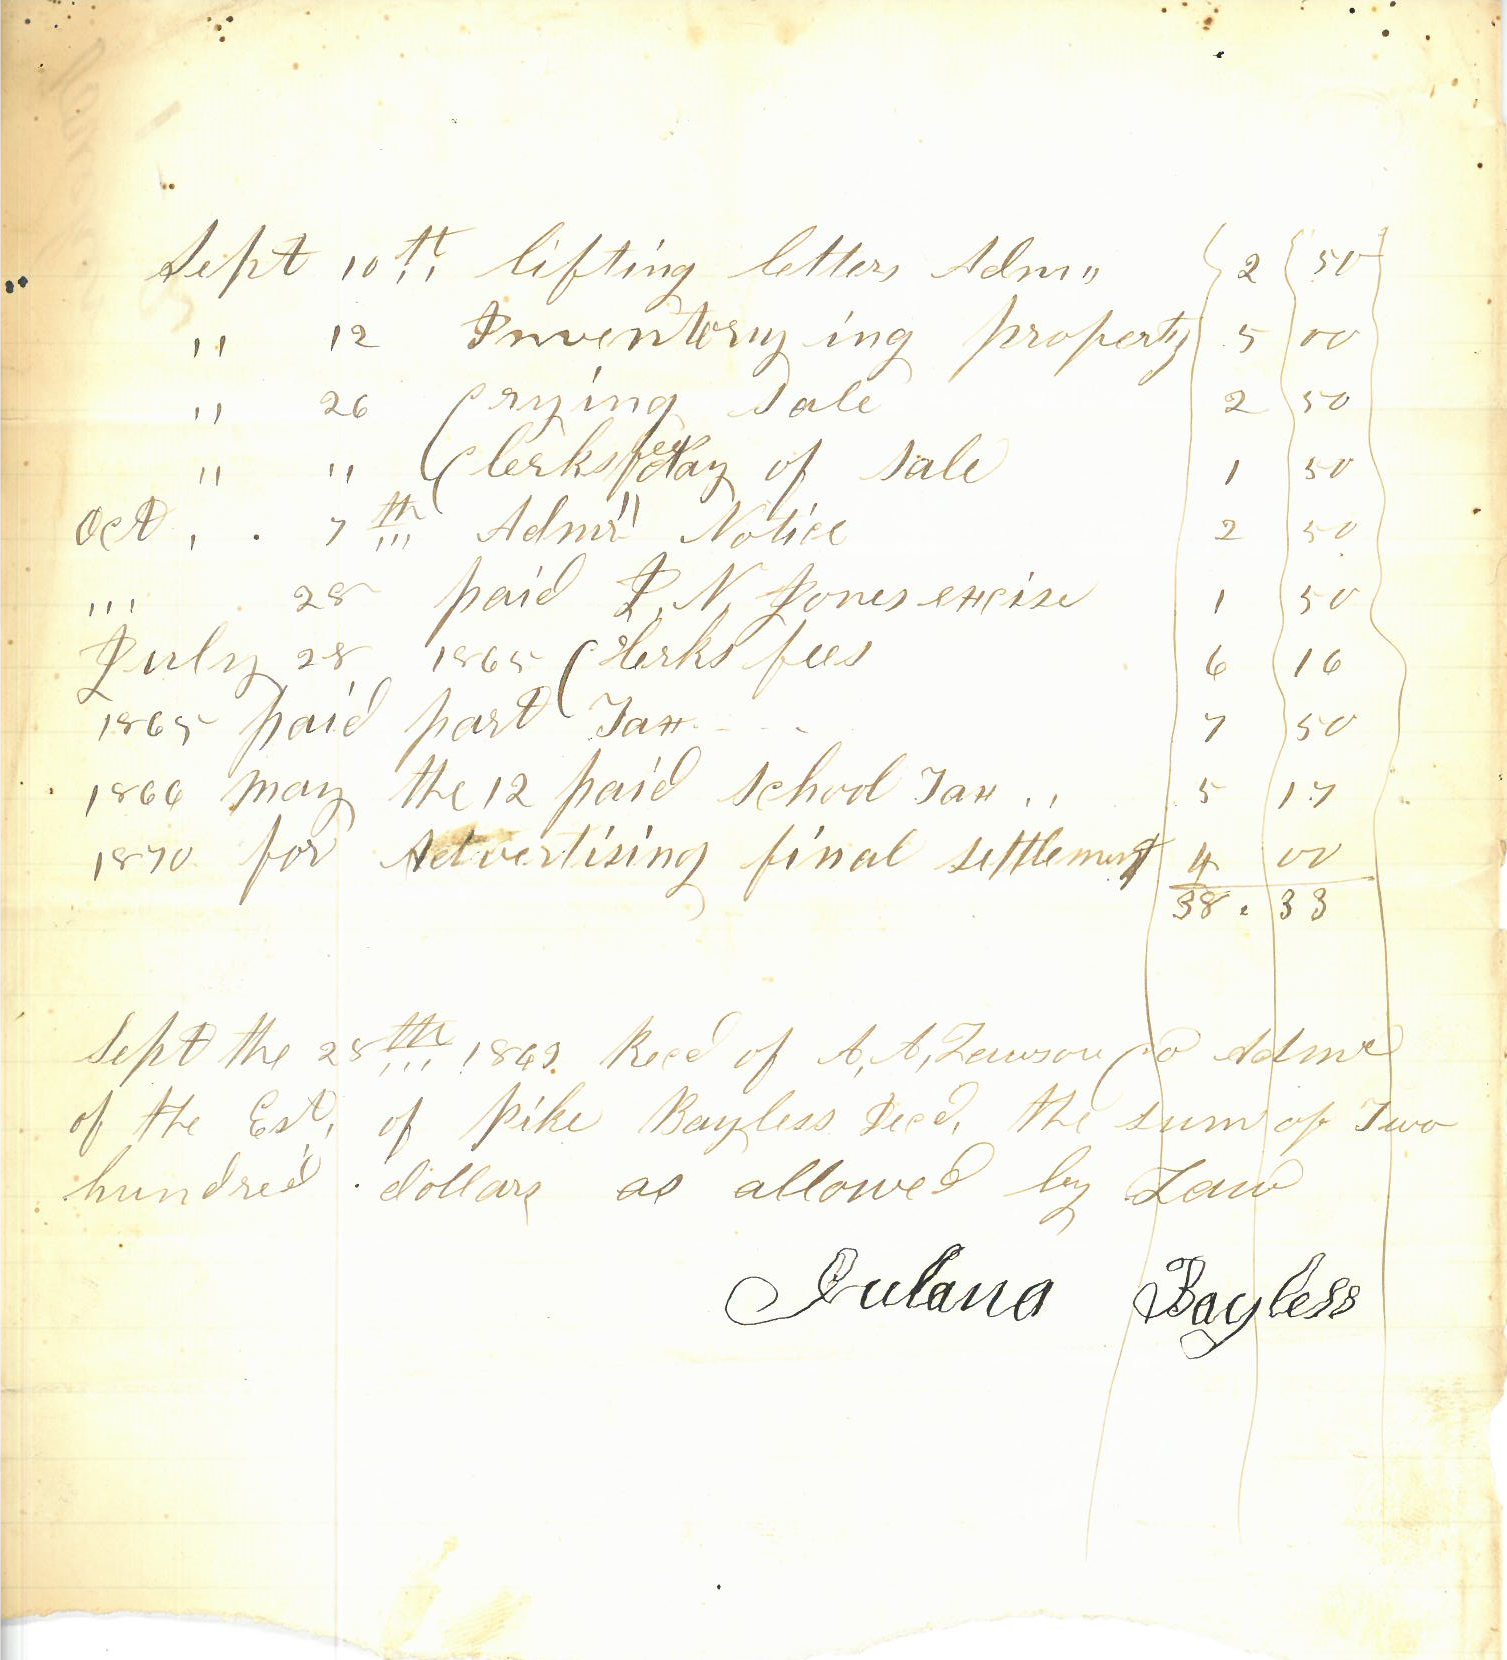 Sept 10th lifting letters Adm,, 2 50
,, 12 Inventorying property 5 00
,, 26 Crying sale 2 50
,, ,, Clerks fee day of sale 1 50
Oct, . 7th Admr" Notice 2 50
,,, 28 paid J. N. Jones excise 1 50
July 28 1865 Clerks fees 6 16
1865 paid part Tax - - - 7 50
1866 may the 12 paid school Tax .. 5 17
1870 for Advertising final settlement 4 00
38.33
Sept the 28th 1869. Recd of A, A, Lawson Co Admr
of the Est, of Pike Bayless Decd, the sum of Two
hundred dollars as allowed by Law
Julana Bayless